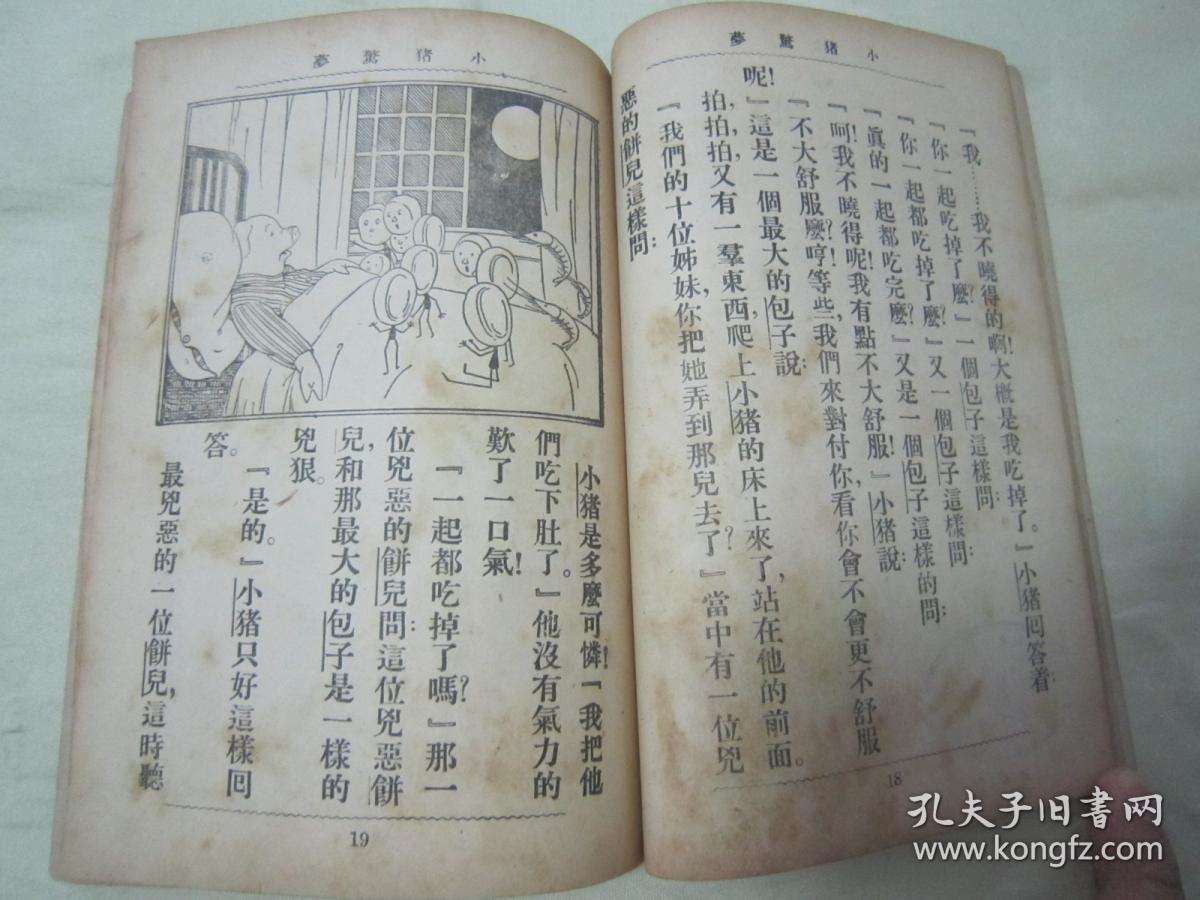 小猪驚夢
『我……我不曉得的啊！大概是我吃掉了。』小猪囘答着：
『你一起吃掉了麼？』一個包子這樣問：
『你一起都吃掉了麼？』又一個包子這樣問：
『眞的一起都吃完麼？』又是一個包子這樣的問：
『呵！我不曉得呢！我有點不大舒服！』小猪說：
『不大舒服麼？哼！等些，我們來對付你，看你會不會更不舒服
呢！』這是一個最大的包子說：
拍，拍，拍，又有一羣東西，爬上小猪的床上來了，站在他的前面。
『我們的十位姊妹，你把她弄到那兒去了？』當中有一位兇
惡的餅兒這樣問：
18
小猪驚夢
小猪是多麼可憐！『我把他
們吃下肚了。』他沒有氣力的
歎了一口氣！
『一起都吃掉了嗎？』那一
位兇惡的餅兒問：這位兇惡餅
兒，和那最大的包子是一樣的
兇狠。
『是的。』小猪只好這樣囘
答。
最兇惡的一位餅兒，這時聽
19
孔夫子旧书网
www.kongfz.com